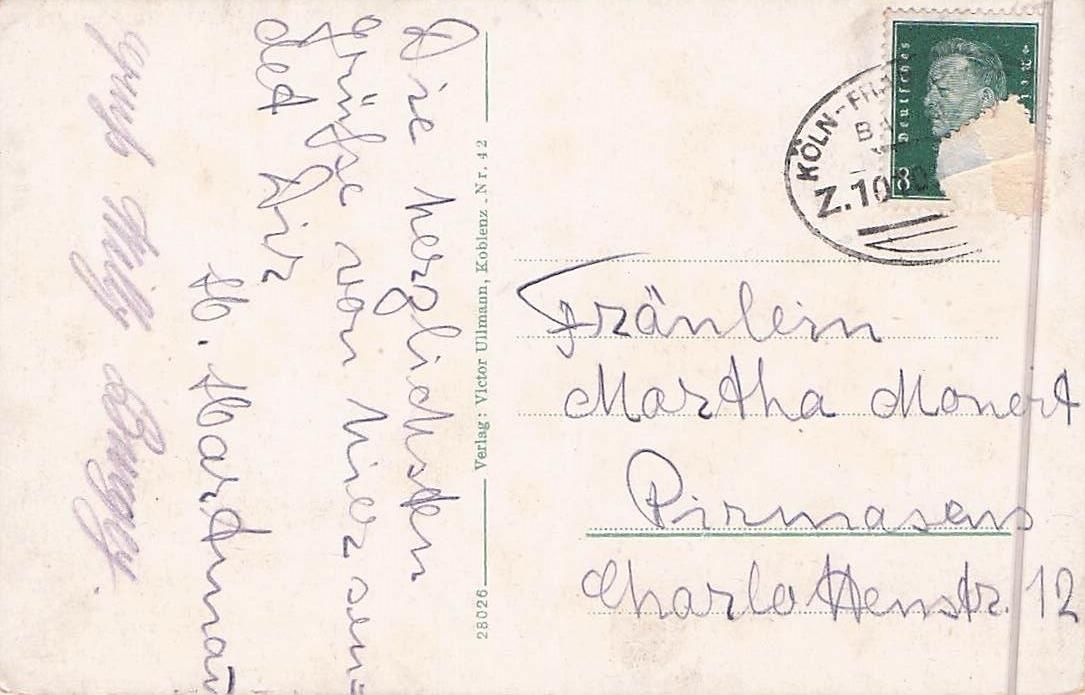 Die herzlichsten
grüße von hier sen=
det Dir
H. Hartman
gruß Milly
28026 Verlag: Victor Ullmann, Koblenz . Nr. 42
Deutsches
8
KÖLN-FRA
BA
Z.10
Fräulein
Martha Monert
Pirmasens
Charlottenstr. 12